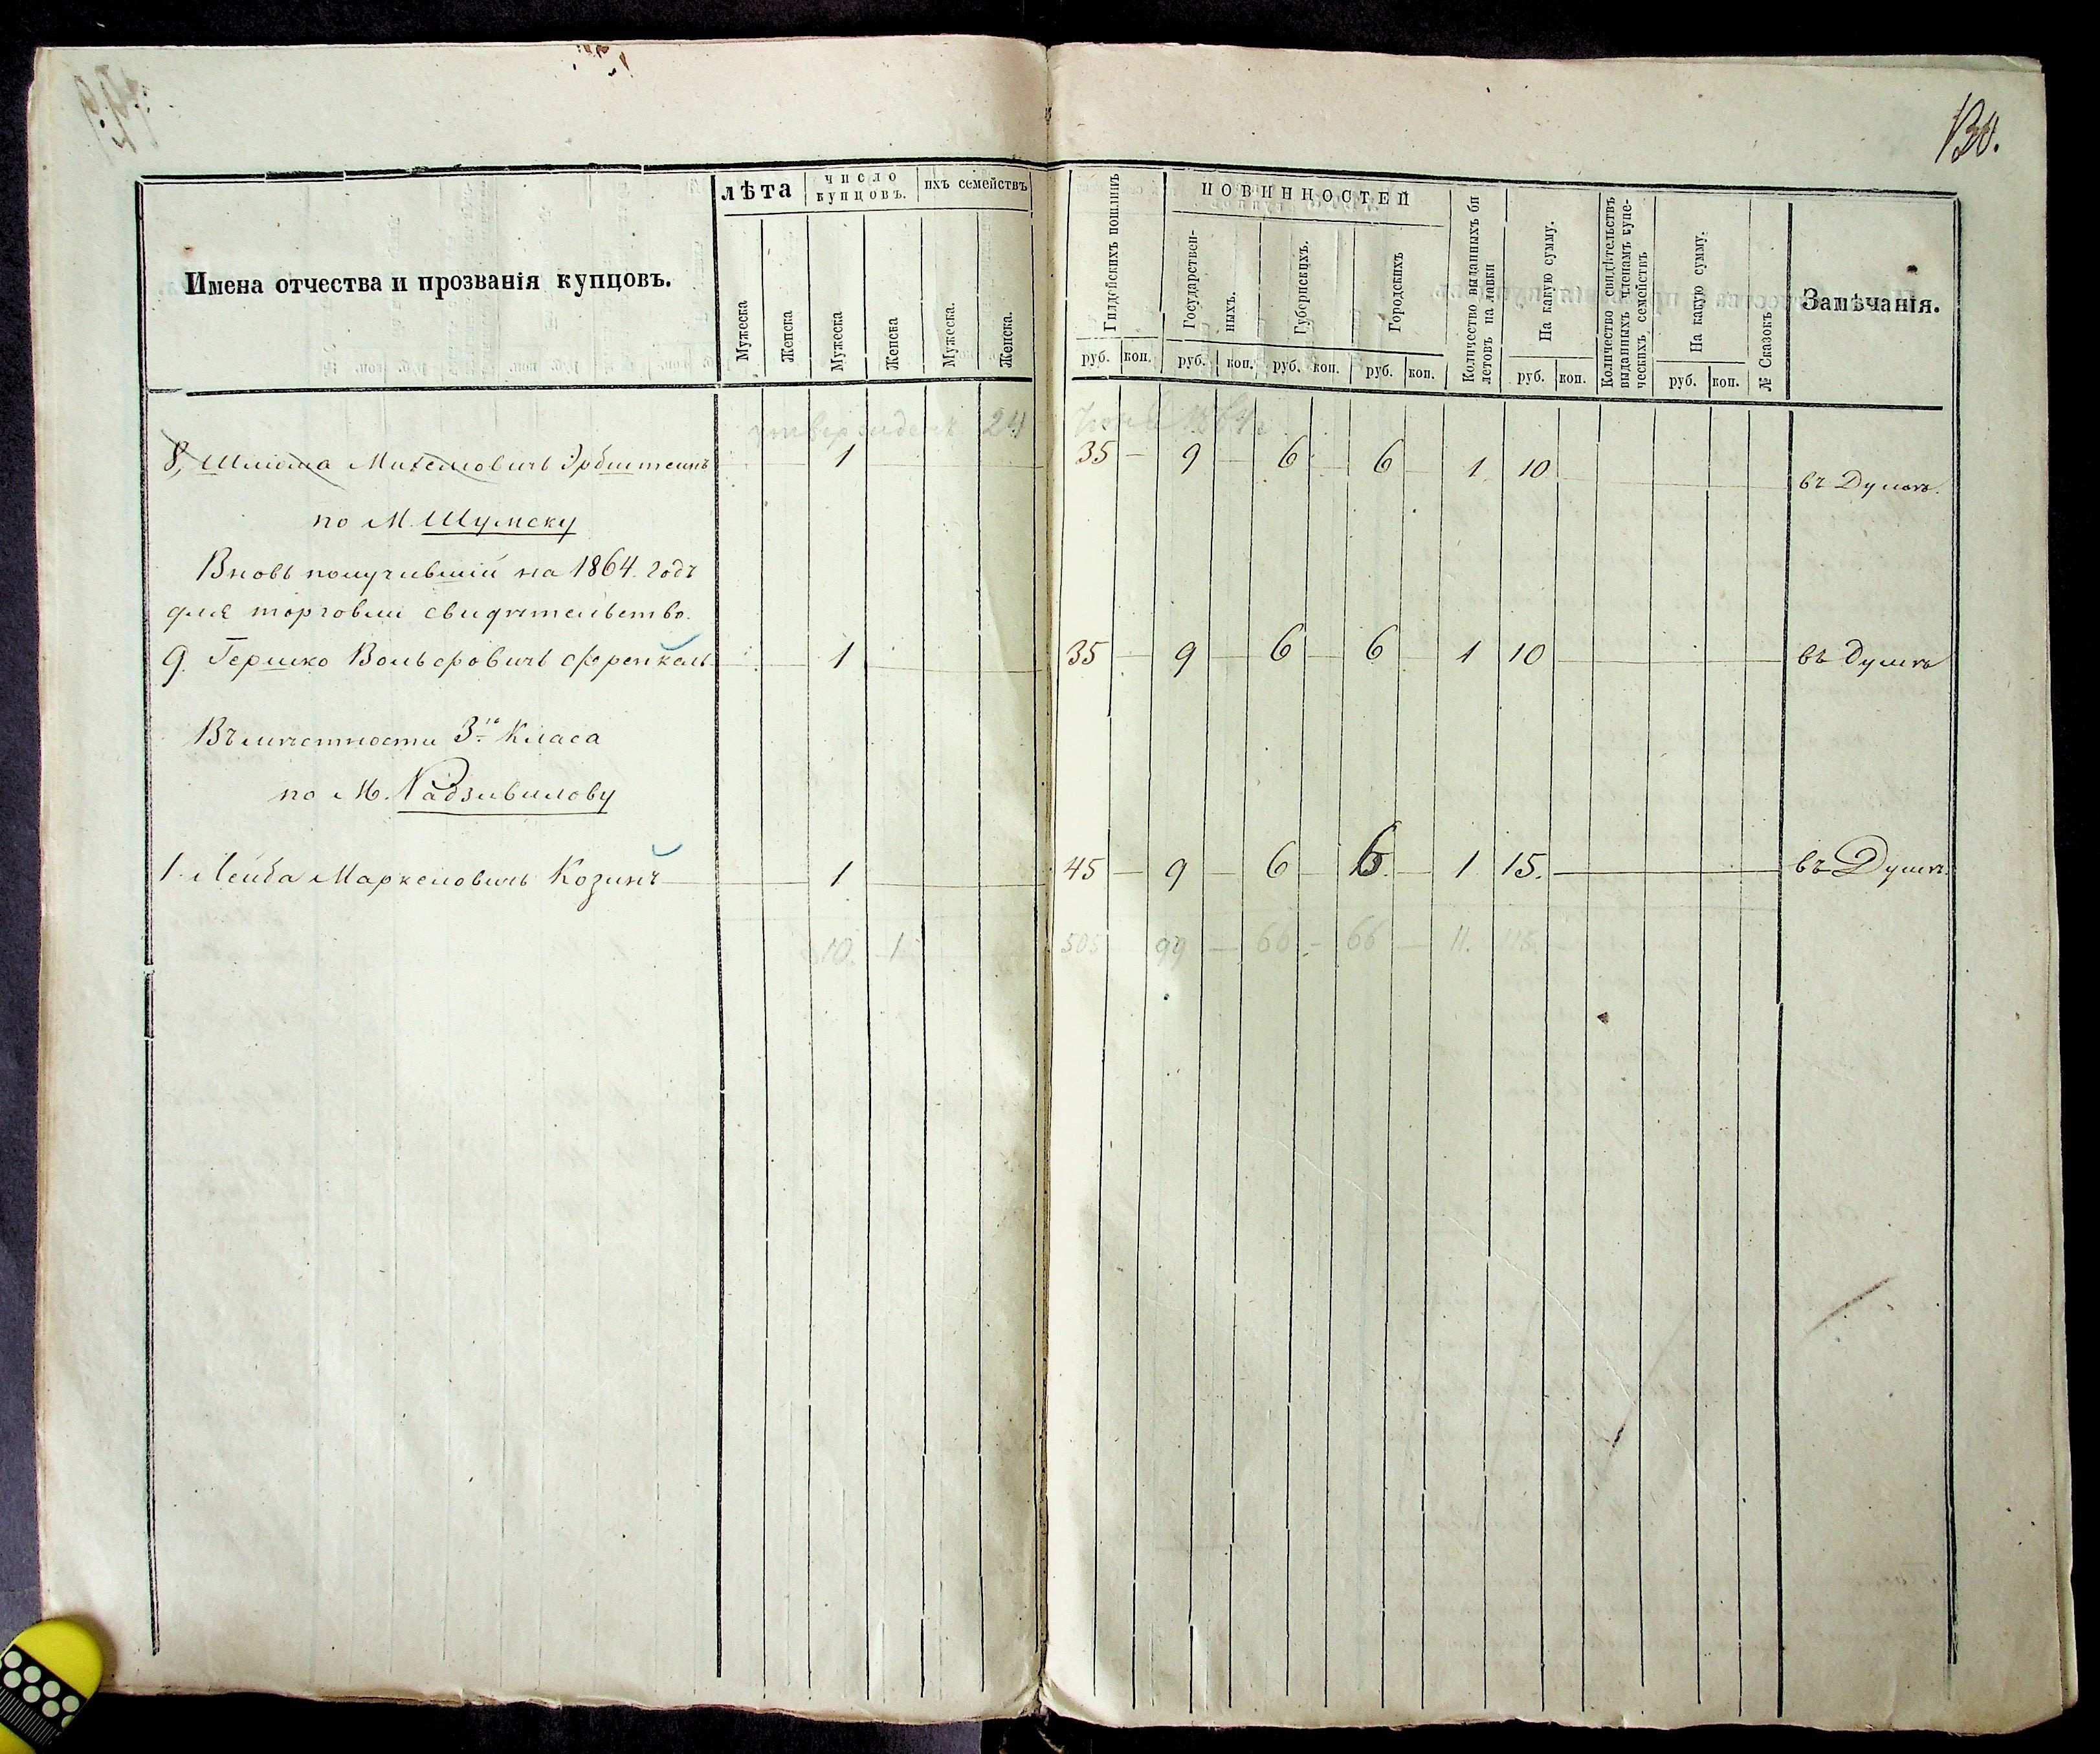 130.
Имена отчества и прозванія купцовъ.
лѣта
число купцовъ.
ихъ семействъ
Мужеска
Женска
Мужеска
Женска
Мужеска.
Женска.
Гильдейскихъ пошлинъ
ПОВИННОСТЕЙ
Государствен-
ныхъ.
Губернскихъ.
Городскихъ
Количество выданныхъ би
летовъ на лавки
На какую сумму.
Количество свидѣтельствъ
выданныхъ членамъ купе-
ческихъ семействъ
На какую сумму.
№ Сказокъ
Замѣчанія.
руб. коп. руб. коп. руб. коп. руб. коп. руб. коп. руб. коп.
утвержденъ 24 1864
8, Шлиома Михелевичъ Эрбштеинъ 1 35 — 9 — 6 — 6 — 1 10 въ Думѣ.
по М. Шумску
Вновь получившій на 1864. годъ
для торговли свидѣтельство.
9. Гершко Вольфовичъ Френкель 1 35 — 9 — 6 — 6 — 1 10 въ думѣ
Въ мѣстности 3го Класа
по М. Радзивилову
1. Лейба Маркеловичъ Козинъ 1 45 — 9 — 6 — 6 — 1 15. въ Думѣ.
10. 1 505 99 — 66 — 66 — 11. 115.